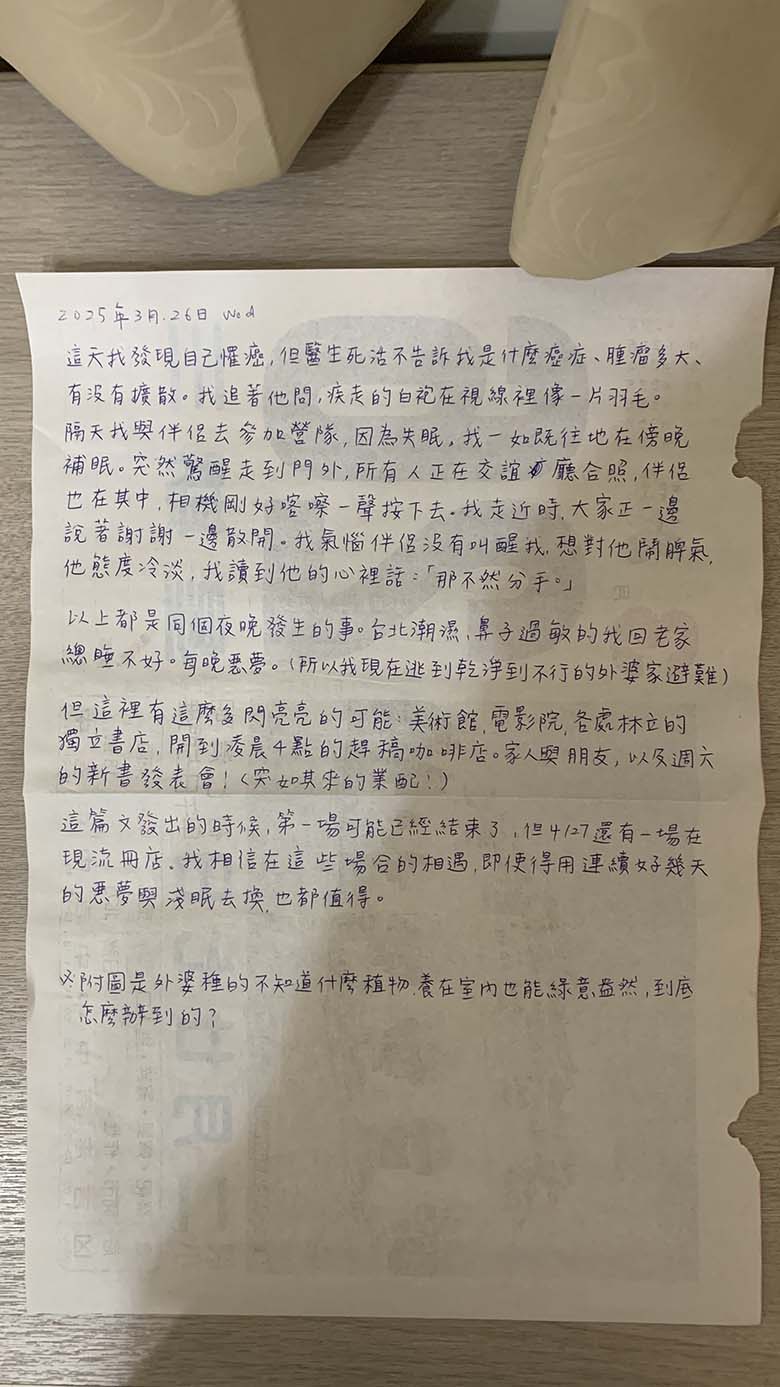 2025年3月.26日 Wed
這天我發現自己罹癌,但醫生死活不告訴我是什麼癌症、腫瘤多大、
有沒有擴散。我追著他問,疾走的白袍在視線裡像一片羽毛。
隔天我與伴侶去參加營隊,因為失眠,我一如既往地在傍晚
補眠。突然驚醒走到門外,所有人正在交誼廳合照,伴侶
也在其中,相機剛好喀嚓一聲按下去。我走近時,大家正一邊
說著謝謝一邊散開。我氣惱伴侶沒有叫醒我,想對他鬧脾氣,
他態度冷淡,我讀到他的心裡話:「那不然分手。」
以上都是同個夜晚發生的事。台北潮濕,鼻子過敏的我回老家
總睡不好。每晚惡夢。(所以我現在逃到乾淨到不行的外婆家避難)
但這裡有這麼多閃亮亮的可能:美術館,電影院,各處林立的
獨立書店,開到凌晨4點的趕稿咖啡店。家人與朋友,以及週六
的新書發表會!(突如其來的業配!)
這篇文發出的時候,第一場可能已經結束了,但4/27還有一場在
現流冊店。我相信在這些場合的相遇,即使得用連續好幾天
的惡夢與淺眠去換,也都值得。
※附圖是外婆種的不知道什麼植物,養在室內也能綠意盎然,到底
怎麼辦到的?